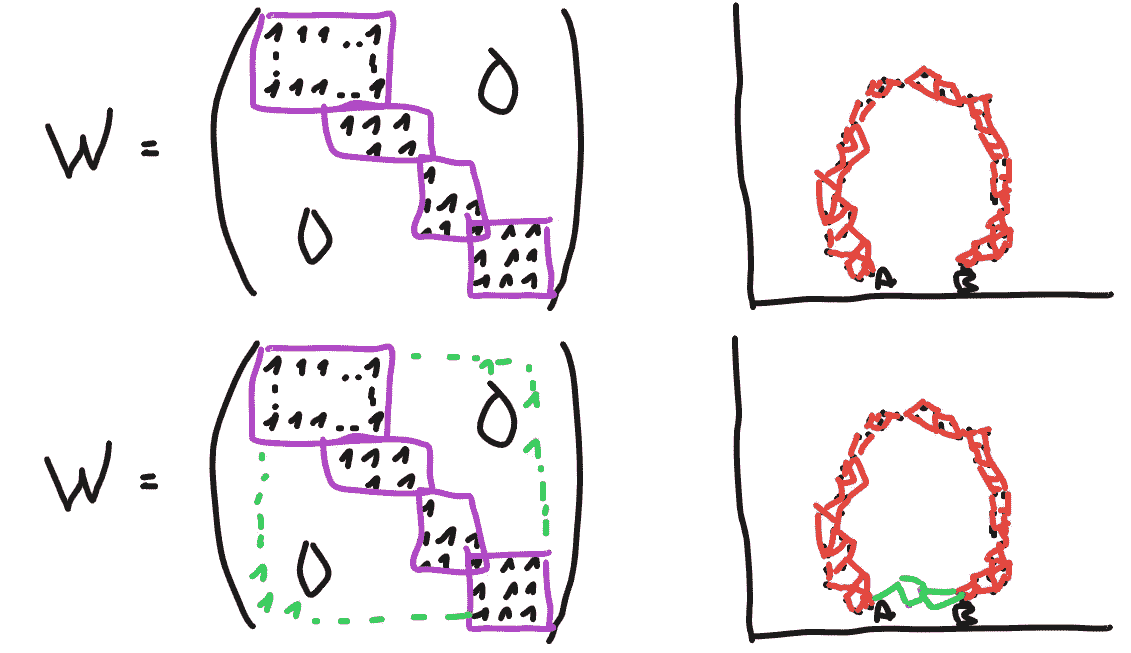 W =
1 1 1 .. 1
1 1 1 .. 1
0
1 1 1
1 1
1
1 1 1
1 1 1
0
1 1
1 1 1
1 1 1
A B
W =
1 1 1 .. 1
1 1 1 .. 1
1
0
1
1 1 1
1
1 1
1
1 1 1
1 1 1
0
1 1
1
1 1 1
1 1
1 1 1
A B